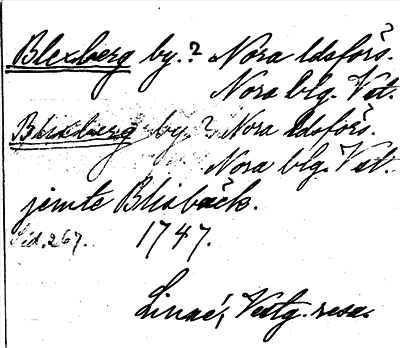 Blexberg by.? Nora ldsförs.
Nora blg. Vst.
Blixberg by? Nora ldsförs.
Nora blg. Vst.
jemte Blisbäck.
Sid. 267. 1747.
Linné, Vestg. resa.